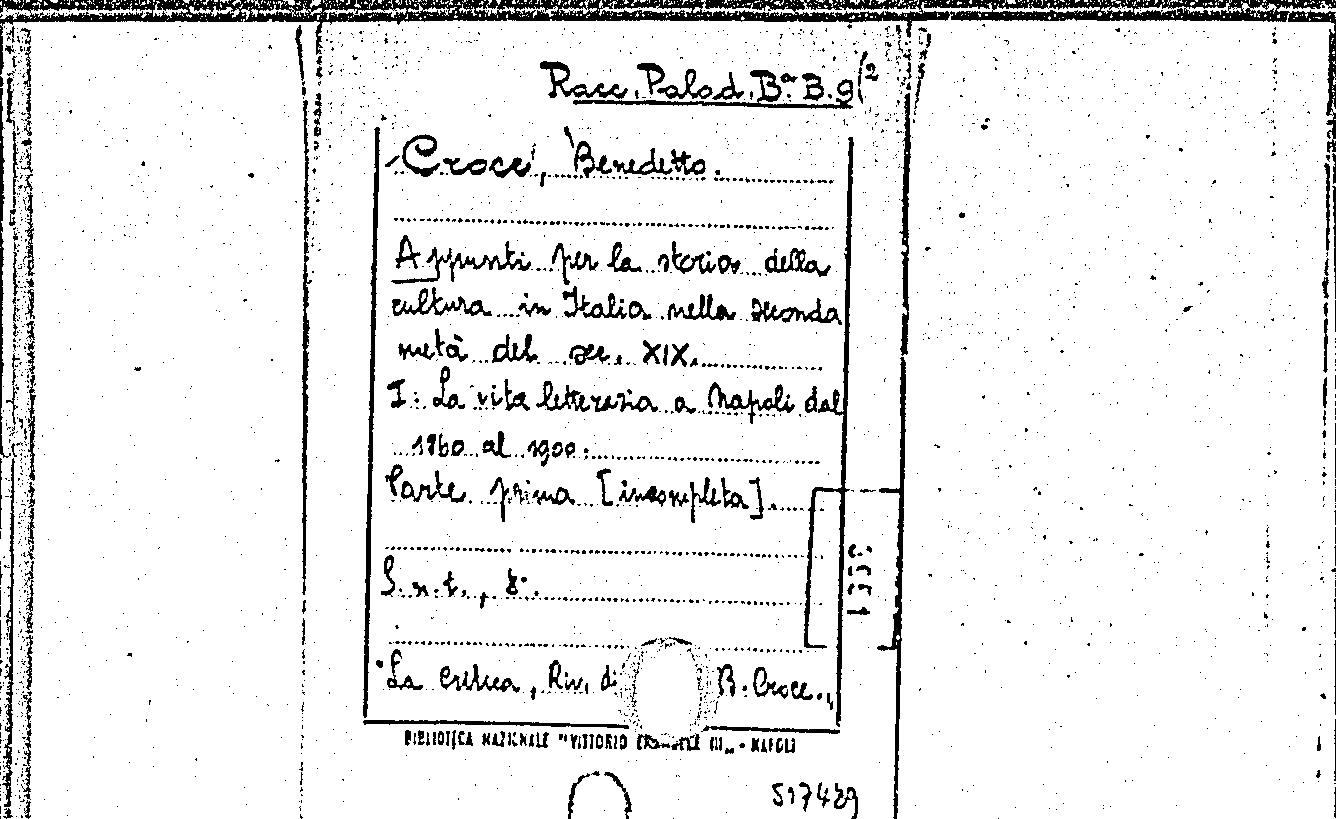 Racc. Palad. Bª. B. 9(2
Croce, Benedetto.
Appunti per la storia della
cultura in Italia nella seconda
metà del sec. XIX.
I: La vita letteraria a Napoli dal
1860 al 1900.
Parte prima [incompleta].
S.n.t., 8°.
La Critica, Riv. di B. Croce.,
BIBLIOTECA NAZIONALE "VITTORIO EMANUELE III„ - NAPOLI